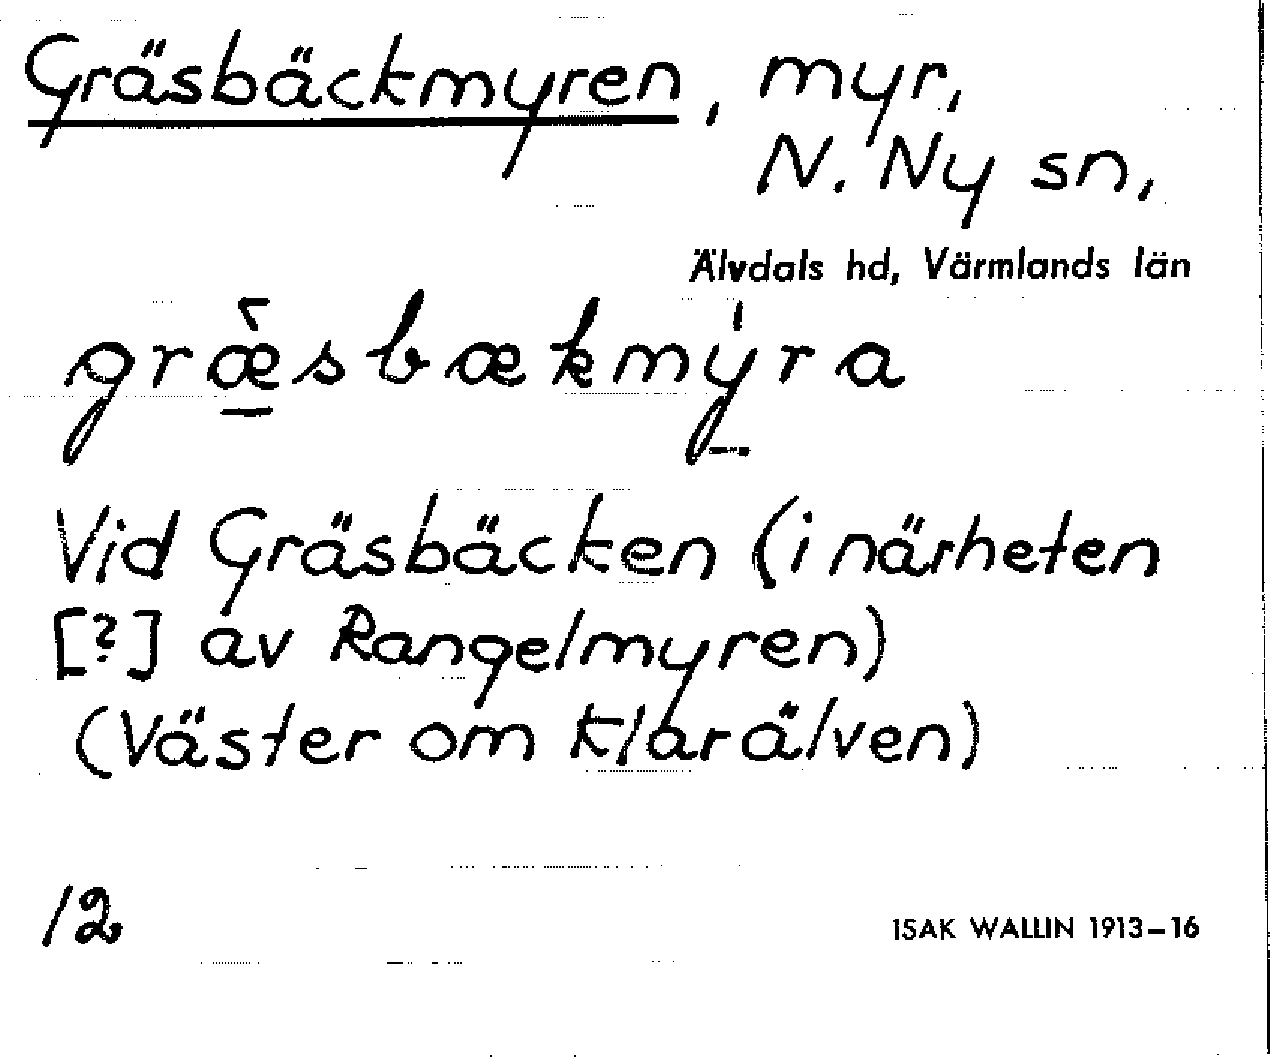 Gräsbäckmyren, myr,
N. Ny sn,
Älvdals hd, Värmlands län
græ̀sbækmy̍ra
Vid Gräsbäcken (i närheten
[?] av Rangelmyren)
(Väster om Klarälven)
12
ISAK WALLIN 1913–16